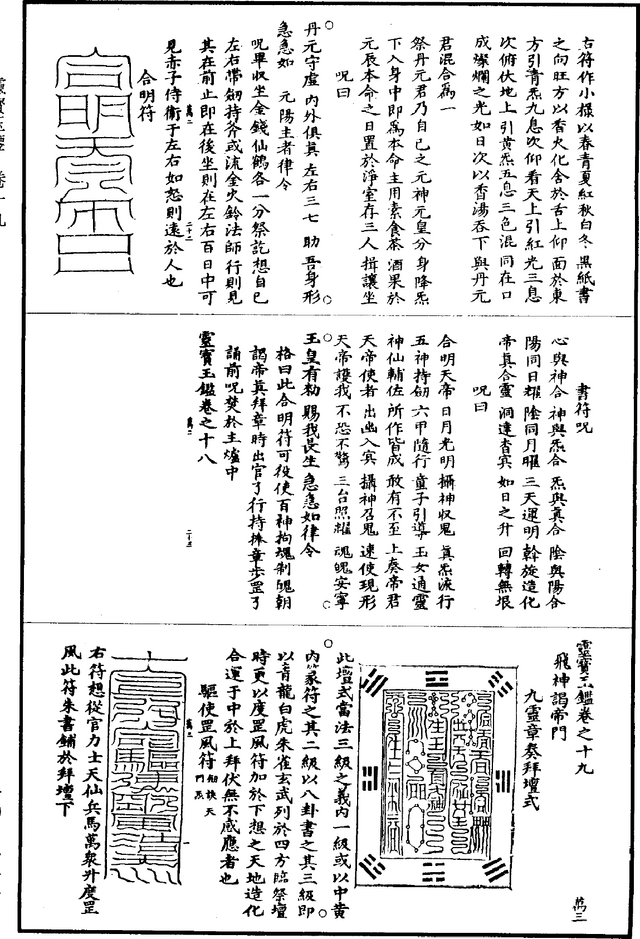 右符作小様以春青夏紅秋白冬黑紙書
之向旺方以香火化含於舌上仰面於東
方引青炁九息次仰看天上引紅光三息
次俯伏地上引黃炁五息三色混同在口
成燦爛之光如日次以香湯吞下與丹元
君混合爲一
祭丹元君乃自己之元神元皇分身降炁
下入身中即爲本命主用素食茶酒果於
元辰本命之日置於淨室存三人揖讓坐
呪曰
丹元守虛 內外俱真 左右三七 助吾身形
急急如 元陽主者律令
呪畢收坐金錢仙鶴各一分祭訖想自己
左右帶劒持斧或流金火鈴法師行則見
其在前止即在後坐則在左右百日中可
見赤子侍衛于左右如怒則遠於人也
合明符
萬二 二十二
書符呪
心與神合 神與炁合 炁與真合 陰與陽合
陽同日耀 陰同月曜 三天運明 斡旋造化
帝真合靈 洞達杳冥 如日之升 回轉無垠
呪曰
合明天帝 日月光明 攝神收鬼 真炁流行
五神持劒 六甲隨行 童子引導 玉女通靈
神仙輔佐 所作皆成 敢有不至 上奏帝君
天帝使者 出幽入冥 攝神召鬼 速使現形
天帝護我 不恐不驚 三台照耀 魂魄安寧
玉皇有勑 賜我長生 急急如律令
格曰此合明符可役使百神拘魂制魄朝
謁帝真拜章時出官了行持拜章步罡了
誦前呪焚於主爐中
靈寶玉鑑卷之十八
萬二 二十三
靈寶玉鑑卷之十九 萬三
飛神謁帝門
九靈章奏拜壇式
此壇式當法三級之義內一級或以中黃
內篆符之其二級以八卦書之其三級即
以青龍白虎朱雀玄武列於四方臨祭壇
時更以度罡風符加於下想之天地造化
合運于中於上拜伏無不感應者也
驅使罡風符
萬三
右符想從官力士天仙兵馬萬衆升度罡
風此符朱書鋪於拜壇下